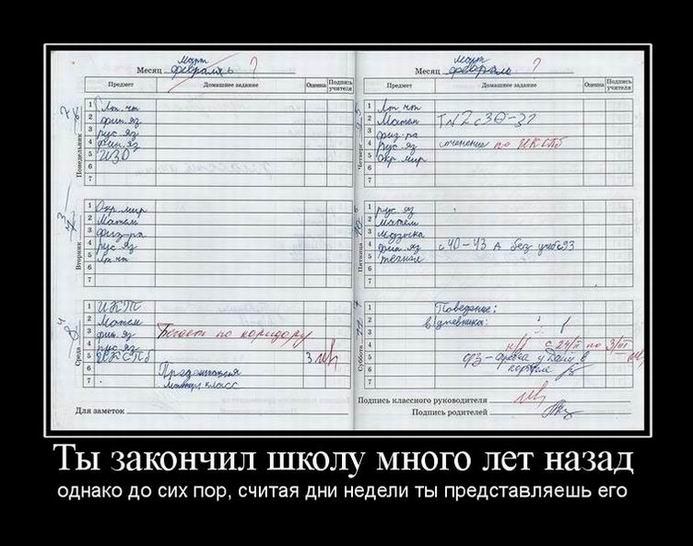 март
Месяц февраль ?
Предмет Домашнее задание Оценка Подпись учителя
Понедельник
1 Лит. чт
2 фин. яз
3 рус. яз
4 фин. яз
5 ИЗО
6
7
3
Вторник
1 Окр. мир
2 Матем
3 физ-ра
4 рус. яз
5 Лит. чт
6
7
4
Среда
1 ИКТ
2 Матем
3 фин. яз Бегает по коридору
4 рус. яз
5 ИКСПб 3
6 Продолжение
7 класс
Для заметок
март
Месяц февраль ?
Предмет Домашнее задание Оценка Подпись учителя
Четверг
1 Лит. чт
2 Матем
3 физ-ра
4 рус. яз сочинение по ИКСПб
5 Окр. мир
6
7
Пятница
1 рус. яз
2 матем
3 музыка
4 фин. яз с 40-43 А без
5
6
7
Суббота
1 Поведение:
2 дневника:
3
4 с 24/II по 3/III
5
6
7
Подпись классного руководителя
Подпись родителей
Ты закончил школу много лет назад
однако до сих пор, считая дни недели ты представляешь его